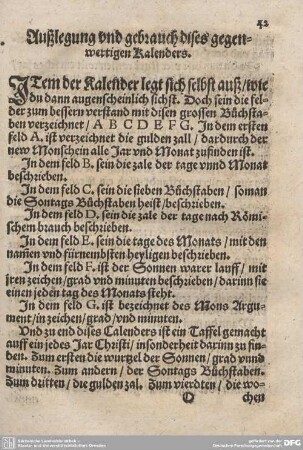 42
Außlegung vnd gebrauch dises gegen-
wertigen Kalenders.
ITem der Kalender legt sich selbst auß/wie
du dann augenscheinlich sichst. Doch sein die fel-
der zum bessern verstand mit disen grossen Bůchsta-
ben verzeichnet/A B C D E F G. In dem ersten
feld A. ist verzeichnet die gulden zall/dardurch der
new Monschein alle Jar vnd Monat zufinden ist.
In dem feld B. sein die zale der tage vnnd Monat
beschrieben.
In dem feld C. sein die sieben Bůchstaben/soman
die Sontags Bůchstaben heist/beschrieben.
In dem feld D. sein die zale der tage nach Römi-
schem brauch beschrieben.
In dem feld E. sein die tage des Monats/mit den
namen vnd fürnembsten heyligen beschrieben.
In dem feld F. ist der Sonnen warer lauff/mit
jren zeichen/grad vnd minuten beschrieben/darinn sie
einen jeden tag des Monats steht.
In dem feld G. ist bezeichnet des Mons Argu-
ment/in zeichen/grad/vnd minuten.
Vnd zu end dises Calenders ist ein Taffel gemacht
auff ein jedes Jar Christi/insonderheit darinn zu fin-
den. Zum ersten die wurzel der Sonnen/grad vnnd
minuten. Zum andern/der Sontags Bůchstaben.
Zum dritten/die gulden zal. Zum vierdten/die wo-
O
chen